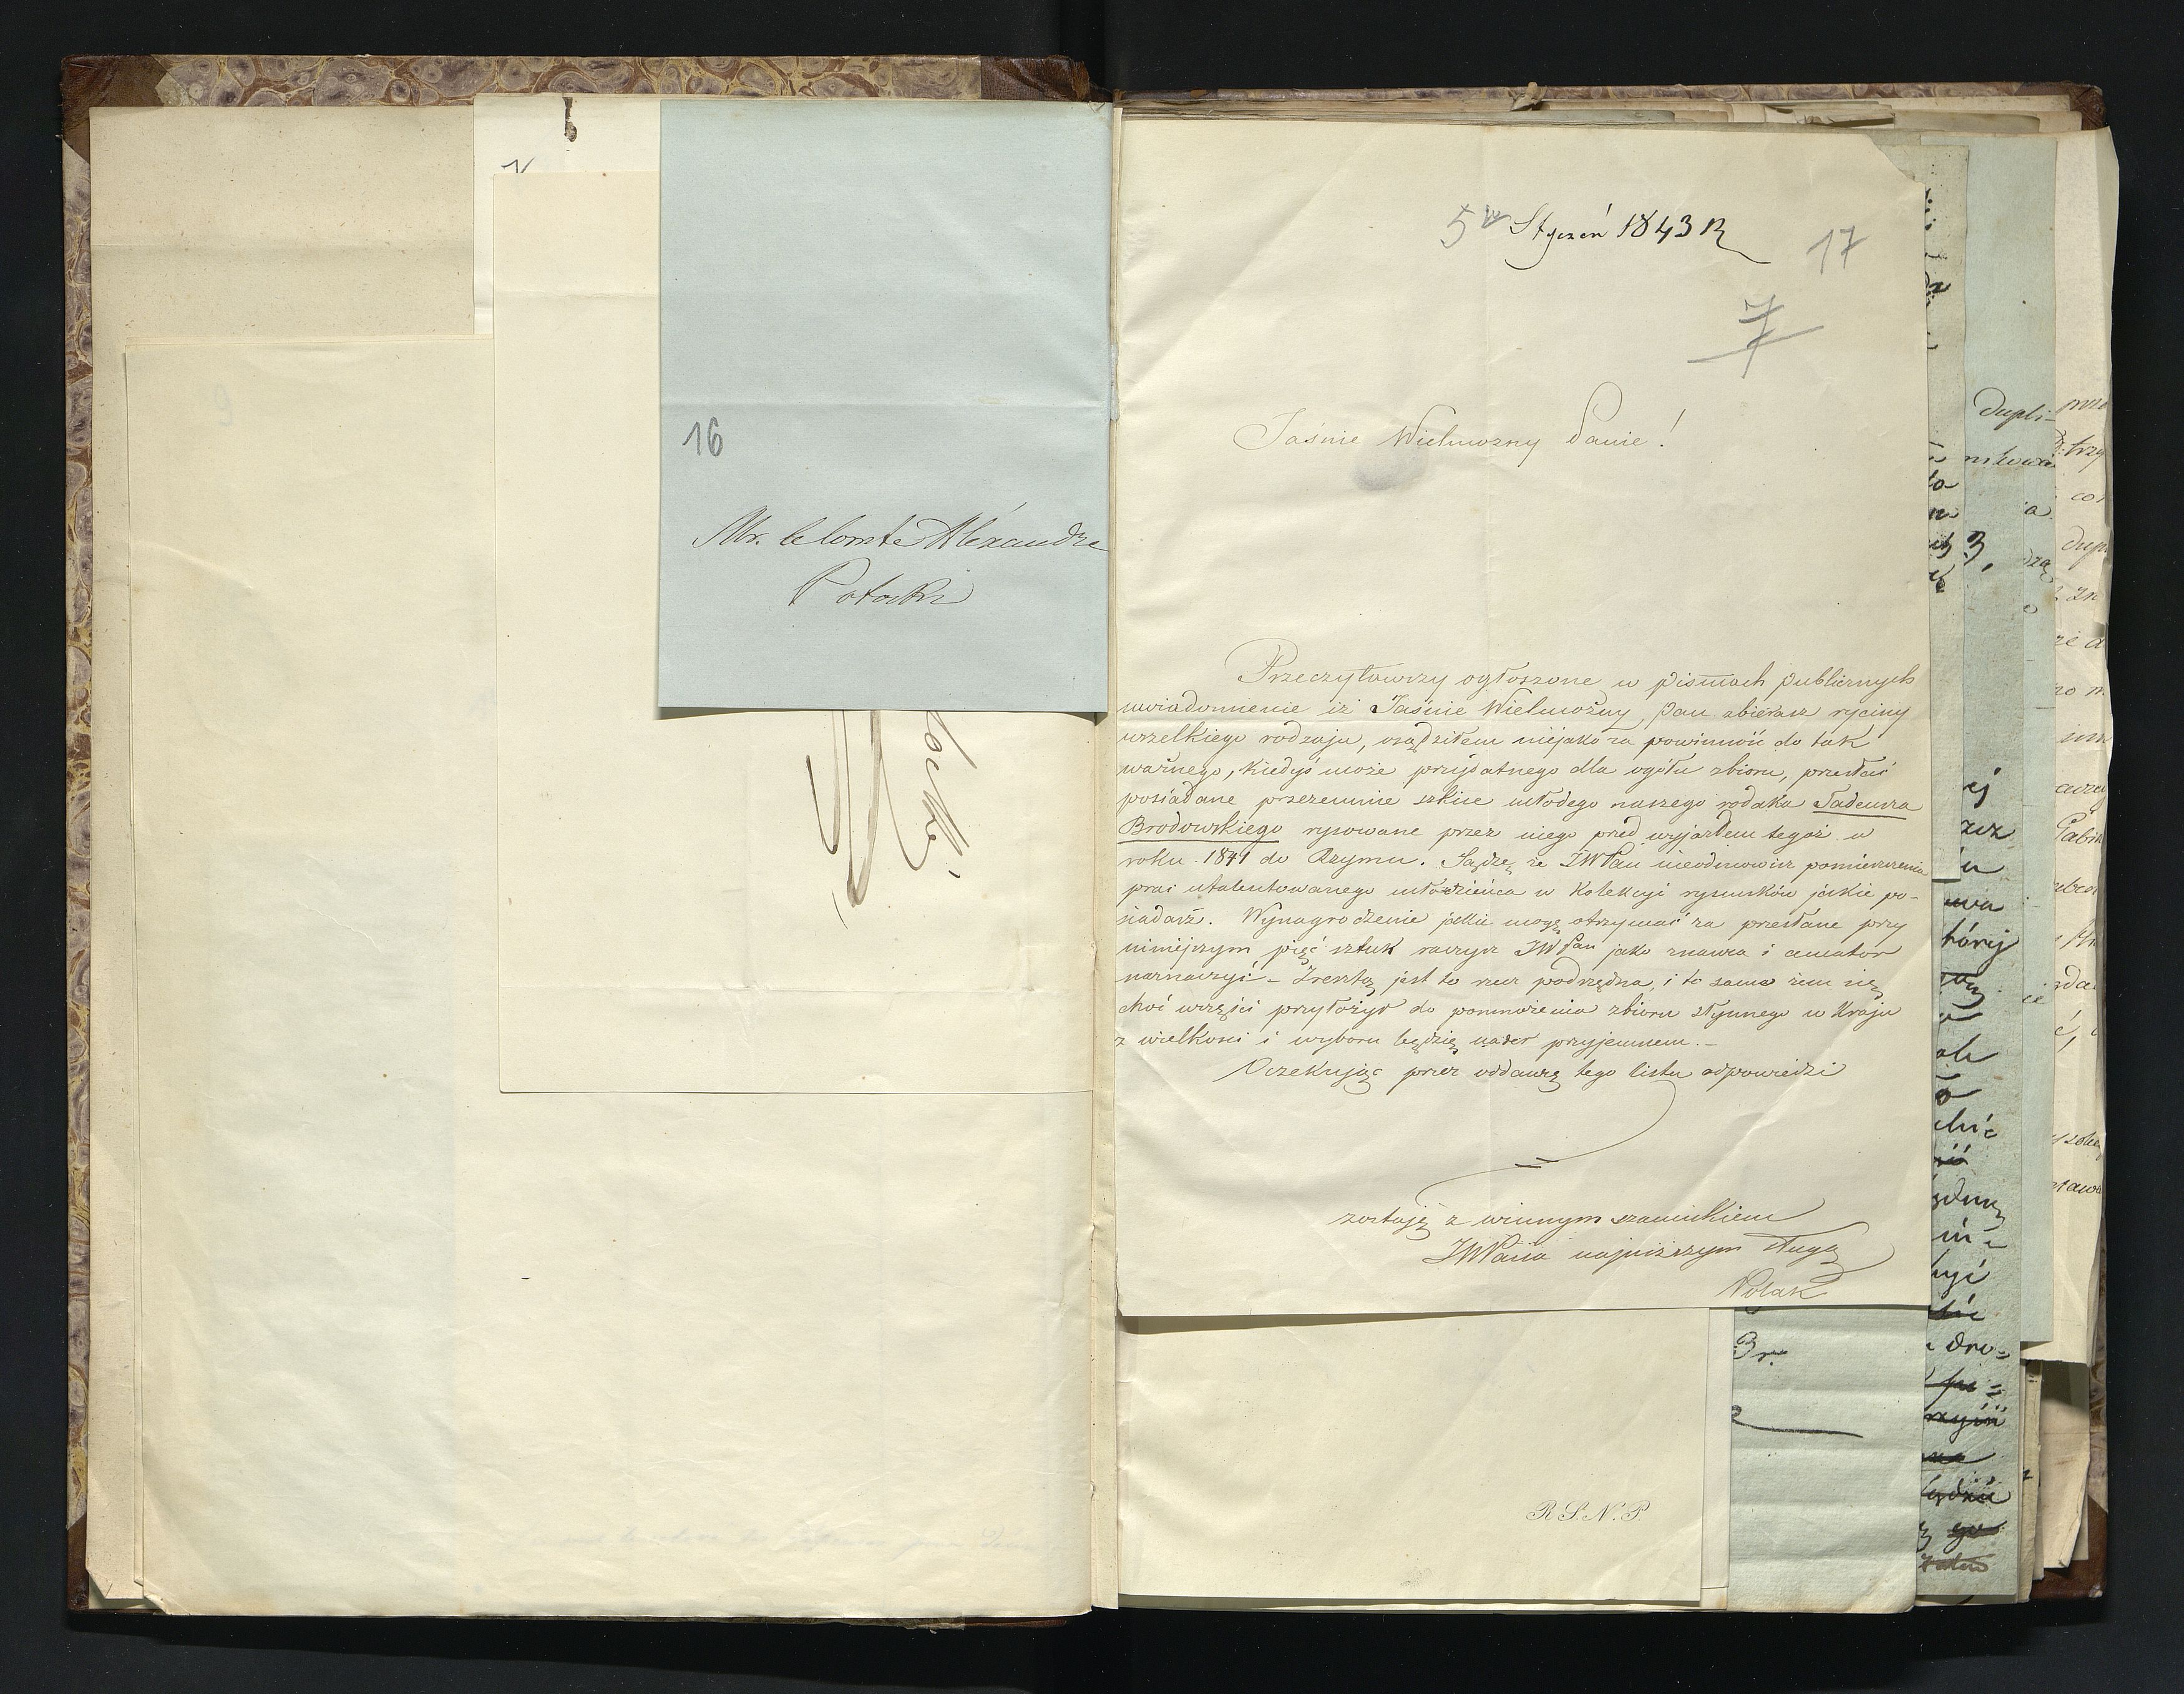 16
Mr. le Comte Aléxandre
Potocki
5 Styczeń 1843 R
17
7
Jaśnie Wielmożny Panie!
Przeczytawszy ogłoszone w pismach publicznych
uwiadomienie iż Jaśnie Wielmożny Pan zbierasz ryciny
wszelkiego rodzaju, osądziłem niejako za powinność do tak
ważnego, kiedyś może przydatnego dla ogółu zbioru, przesłać
posiadane przezemnie szkice młodego naszego rodaka Tadeusza
Brodowskiego rysowane przez niego przed wyjazdem tegoż w
roku 1841 do Rzymu. Sądzę że JWPan nieodmowisz pomieszczenia
prac utalentowanego młodzieńca w Kolekcyi rysunków jakie po-
siadasz. Wynagrodzenie jakie mogę otrzymać za przesłane przy
niniejszym pięć sztuk raczysz JWPan jako znawca i amator
naznaczyć - Zresztą jest to rzecz podrzędna, i to samo żem się
choć w części przyłożył do pomnożenia zbioru słynnego w Kraju
z wielkości i wyboru będzie nader przyjemnem. -
Oczekując przez oddawcę tego listu odpowiedzi
zostaję z winnym szacunkiem
JWPana najniższym sługą
Polak
R.S.N.P.